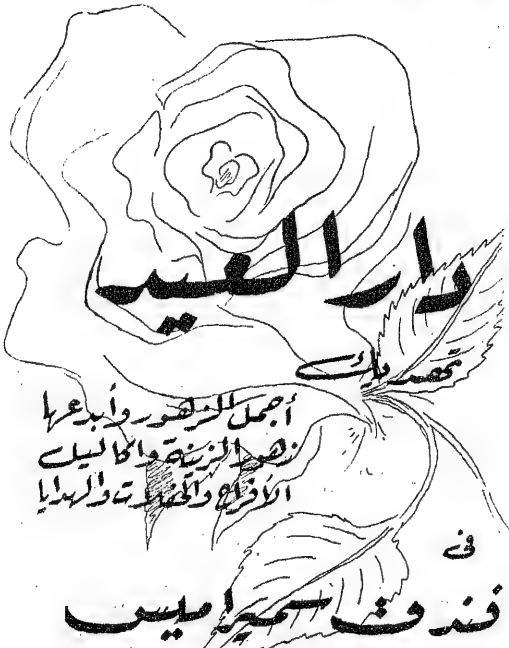 دار العيد
تهديك
أجمل الزهور وأبدعها
زهور الزينة وأكاليل
الأفراح والحفلات والهدايا
فى
فندق سميراميس